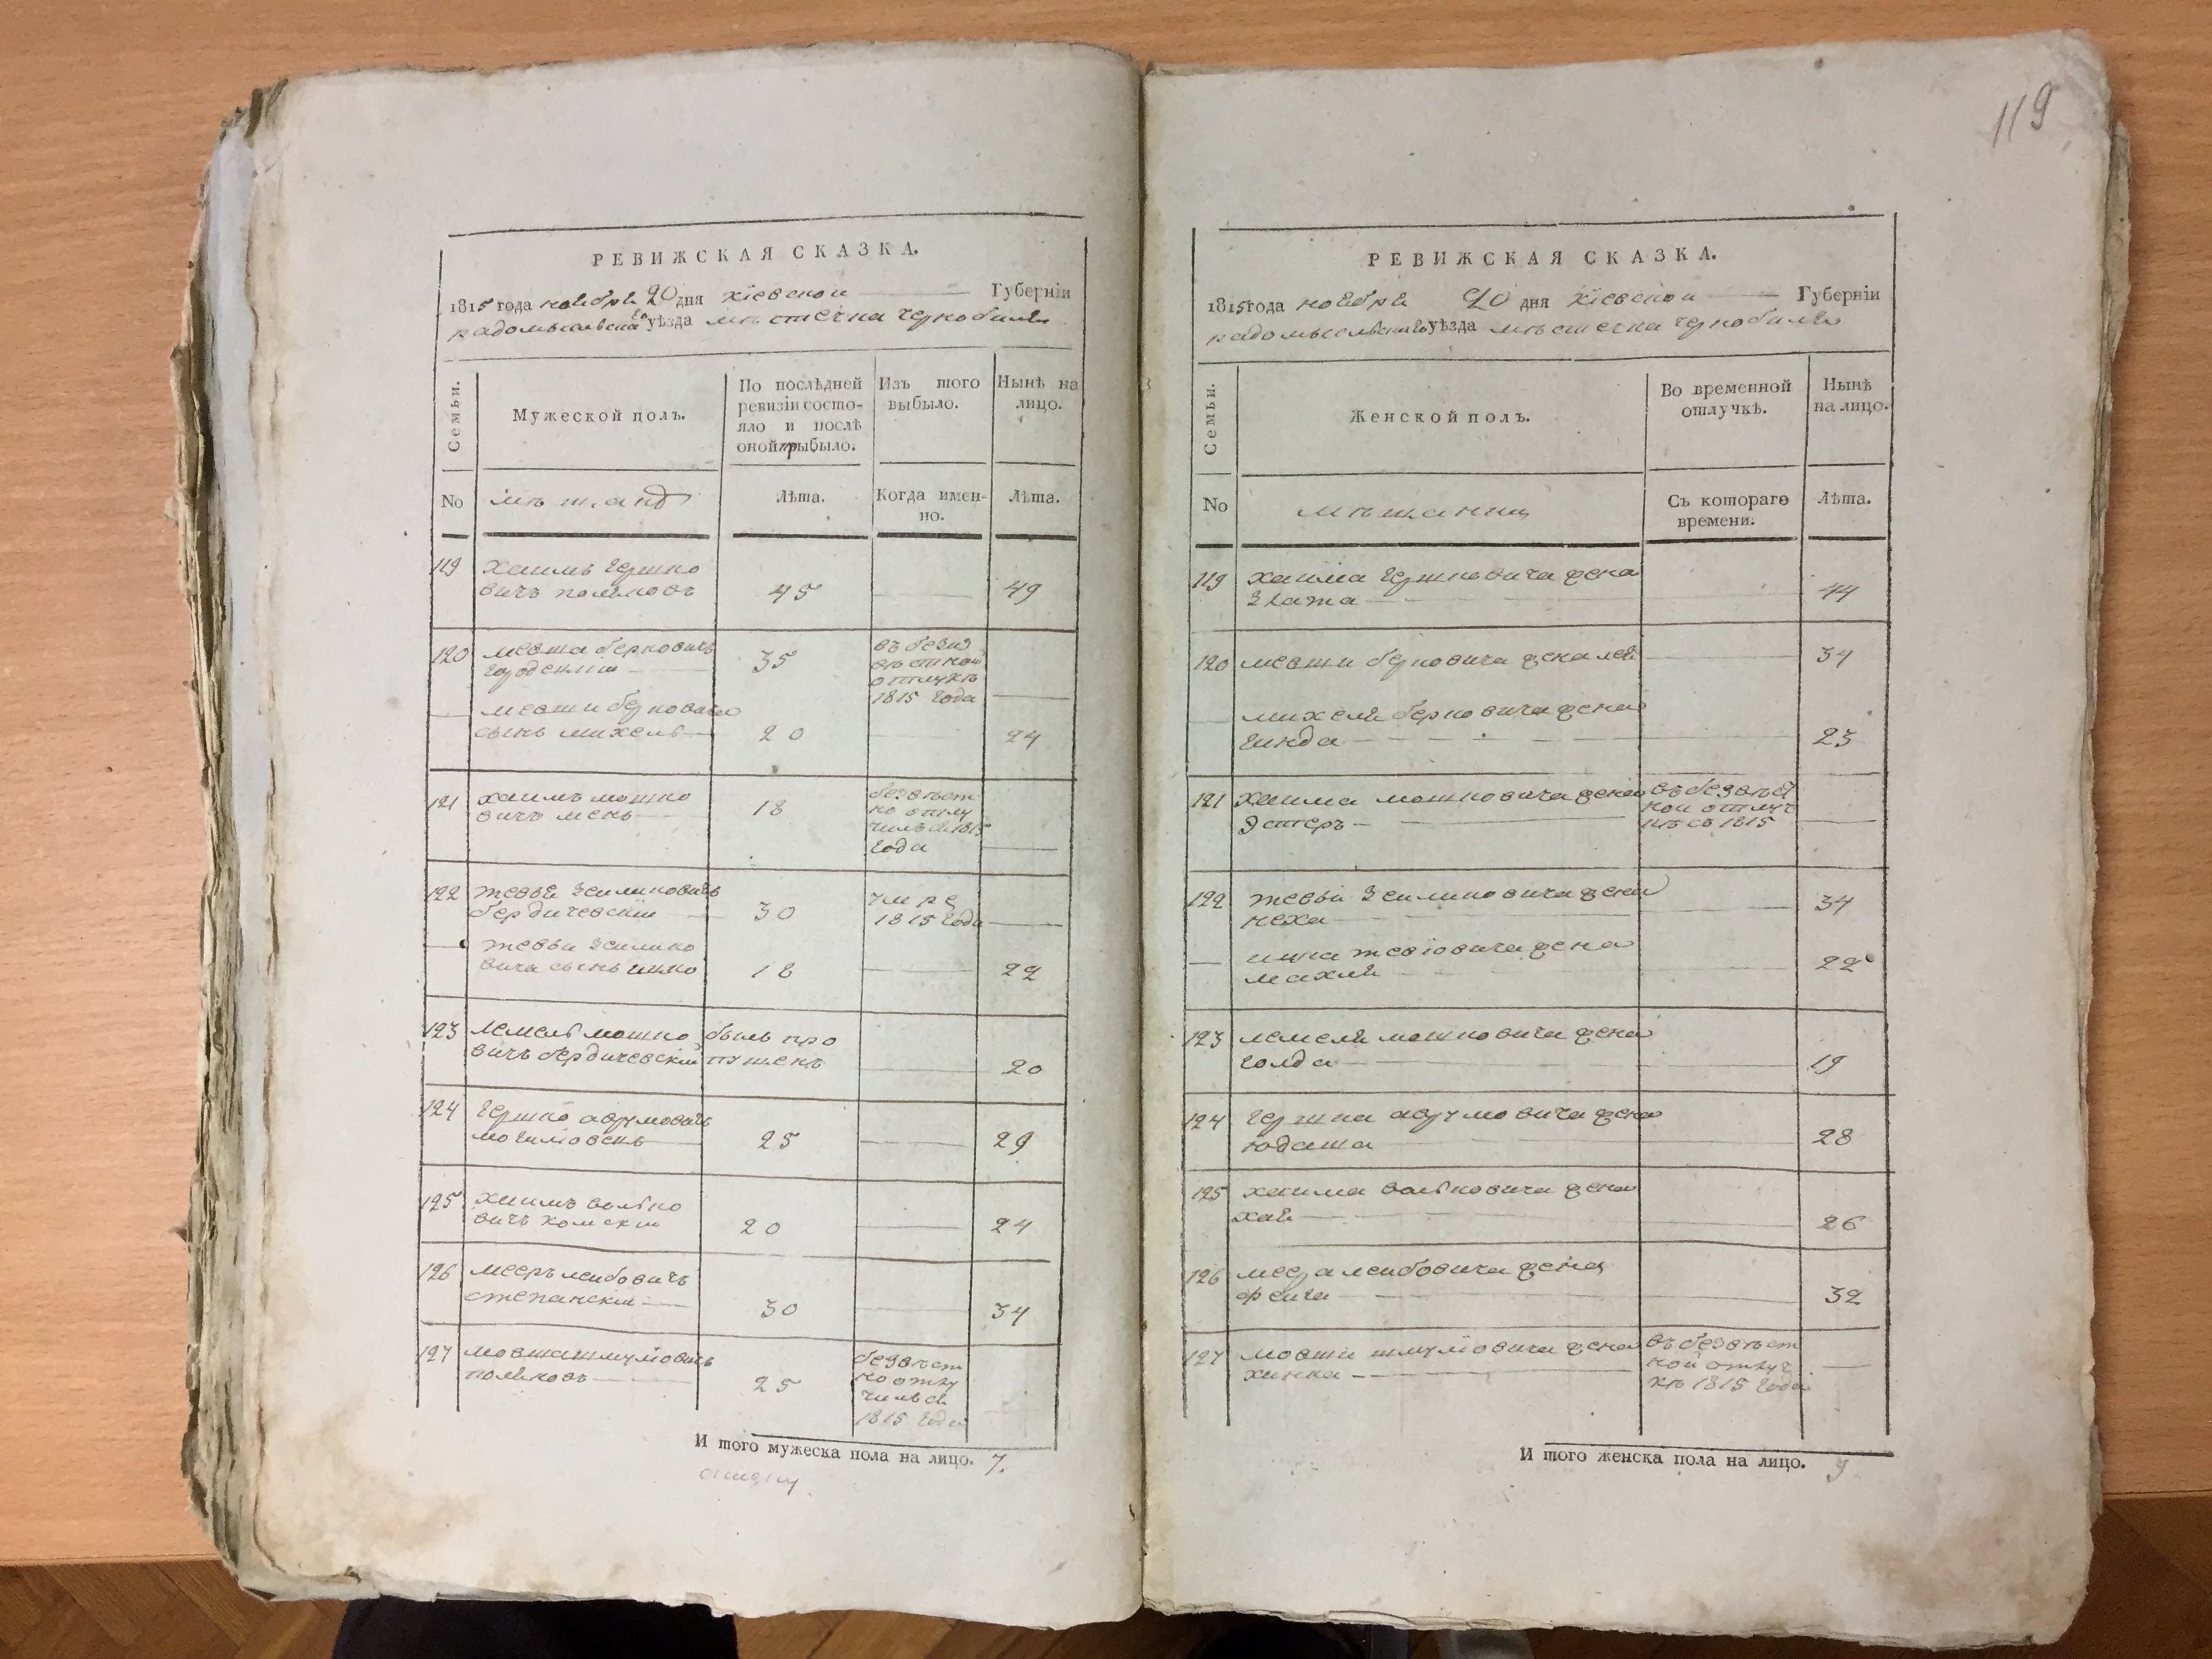 119
РЕВИЖСКАЯ СКАЗКА.
1815 года ноября 20 дня Кіевской Губерніи
радомысльскаго уѣзда мѣстечка чернобыля
Семьи.
Мужеской полъ.
По послѣдней
ревизіи состо-
яло и послѣ
оной прибыло.
Изъ того
выбыло.
Нынѣ на
лицо.
No
мѣщанъ
Лѣта.
Когда имен-
но.
Лѣта.
119 хаимъ гершко
вичъ поляковъ 45 49
120 мовша берковичъ
35
въ безиз
вѣстной
отлукѣ
1815 года
мовши берковича
сынъ михель 20 24
121 хаимъ мошко
вичъ мень 18
безвѣст
но отлу
чился 1815
года
122 тевья зеликовичъ
бердичевскій 30
умре
1815 года
тевьи зелико
вича сынъ ицко 18 22
123 лемель мошко
вичъ бердичевскій
былъ про
пущенъ
20
124 гершко аврумовичъ
25 29
125 хаимъ волько
вичъ хомскіи 20 24
126 мееръ лейбовичъ
степанскіи 30 34
127 мовша шмулïовичъ
поляковъ 25
безвѣст
но отлу
чился
1815 года
И того мужеска пола на лицо. 7.
РЕВИЖСКАЯ СКАЗКА.
1815 года ноября 20 дня Кіевской Губерніи
радомысльскаго уѣзда мѣстечка чернобыля
Семьи.
Женской полъ.
Во временной
отлучкѣ.
Нынѣ
на лицо.
No
мѣщанки
Съ котораго
времени.
Лѣта.
119 хаима гершковича жена
злата 44
120 мовши берковича жена лея 34
михеля берковича жена
гинда 23
121 хаима мошковича жена
эстеръ
въ безвѣст
ной отлуч
кѣ съ 1815
122 тевьи зеликовича жена
неха 34
ицка тевïовича жена
махля 22
123 лемеля мошковича жена
голда 19
124 гершка аврумовича жена
юдаша 28
125 хаима вольковича жена
хая 26
126 меера лейбовича жена
фейга 32
127 мовши шмулïовича жена
хинка
въ безвѣст
ной отлуч
кѣ 1815 года
И того женска пола на лицо. 9